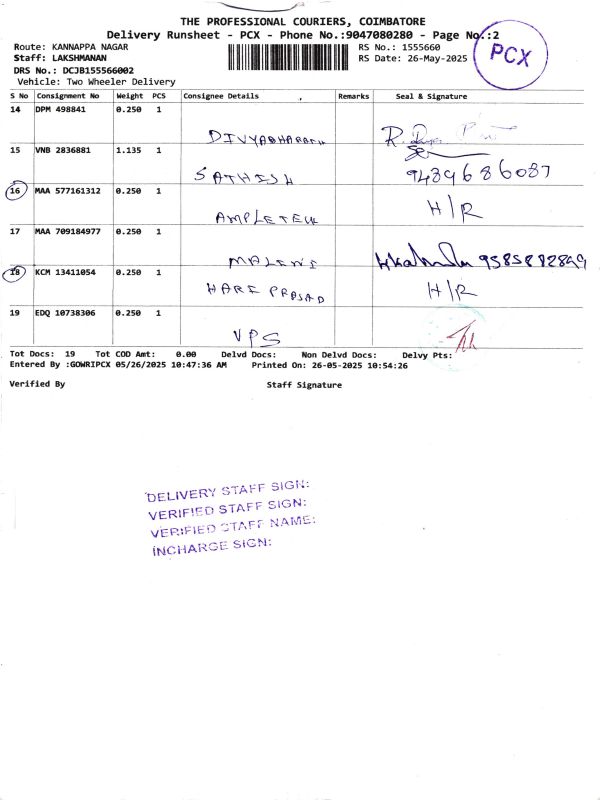 THE PROFESSIONAL COURIERS, COIMBATORE
Delivery Runsheet - PCX - Phone No.:9047080280 - Page No.:2
Route: KANNAPPA NAGAR RS No.: 1555660
Staff: LAKSHMANAN RS Date: 26-May-2025
PCX
DRS No.: DCJB155566002
Vehicle: Two Wheeler Delivery
S No Consignment No Weight PCS Consignee Details Remarks Seal & Signature
14 DPM 498841 0.250 1
DIVYABHARATH R.
15 VNB 2836881 1.135 1
SATHISH 9489686087
16 MAA 577161312 0.250 1
AMPLETECH H/R
17 MAA 709184977 0.250 1
MALENI 9585882899
18 KCM 13411054 0.250 1
HARE PRASAD H/R
19 EDQ 10738306 0.250 1
VPS
Tot Docs: 19 Tot COD Amt: 0.00 Delvd Docs: Non Delvd Docs: Delvy Pts:
Entered By :GOWRIPCX 05/26/2025 10:47:36 AM Printed On: 26-05-2025 10:54:26
Verified By Staff Signature
DELIVERY STAFF SIGN:
VERIFIED STAFF SIGN:
VERIFIED STAFF NAME:
INCHARGE SIGN: